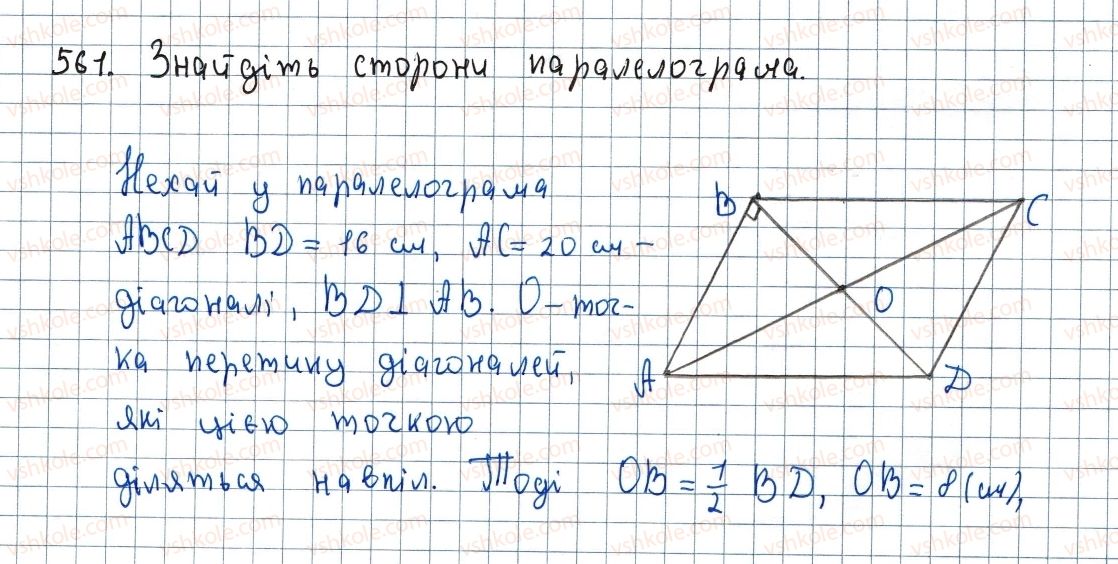 561. Знайдіть сторони паралелограма.
Нехай у паралелограма
ABCD BD = 16 см, AC = 20 см –
діагоналі, BD ⊥ AB. O – точ-
ка перетину діагоналей,
які цією точкою
діляться навпіл. Тоді OB = 1/2 BD, OB = 8 (см),
B
C
O
A
D
vshkole.com